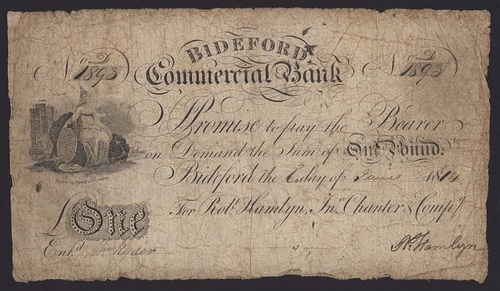 BIDEFORD
Commercial Bank
No D 1893
No D 1893
I Promise to pay the Bearer
on Demand the Sum of One Pound.
Bideford the 6 day of June 1814
For Robt. Hamlyn, Jno. Chanter & Compy.
£One
Entd. Ryder
R. Hamlyn